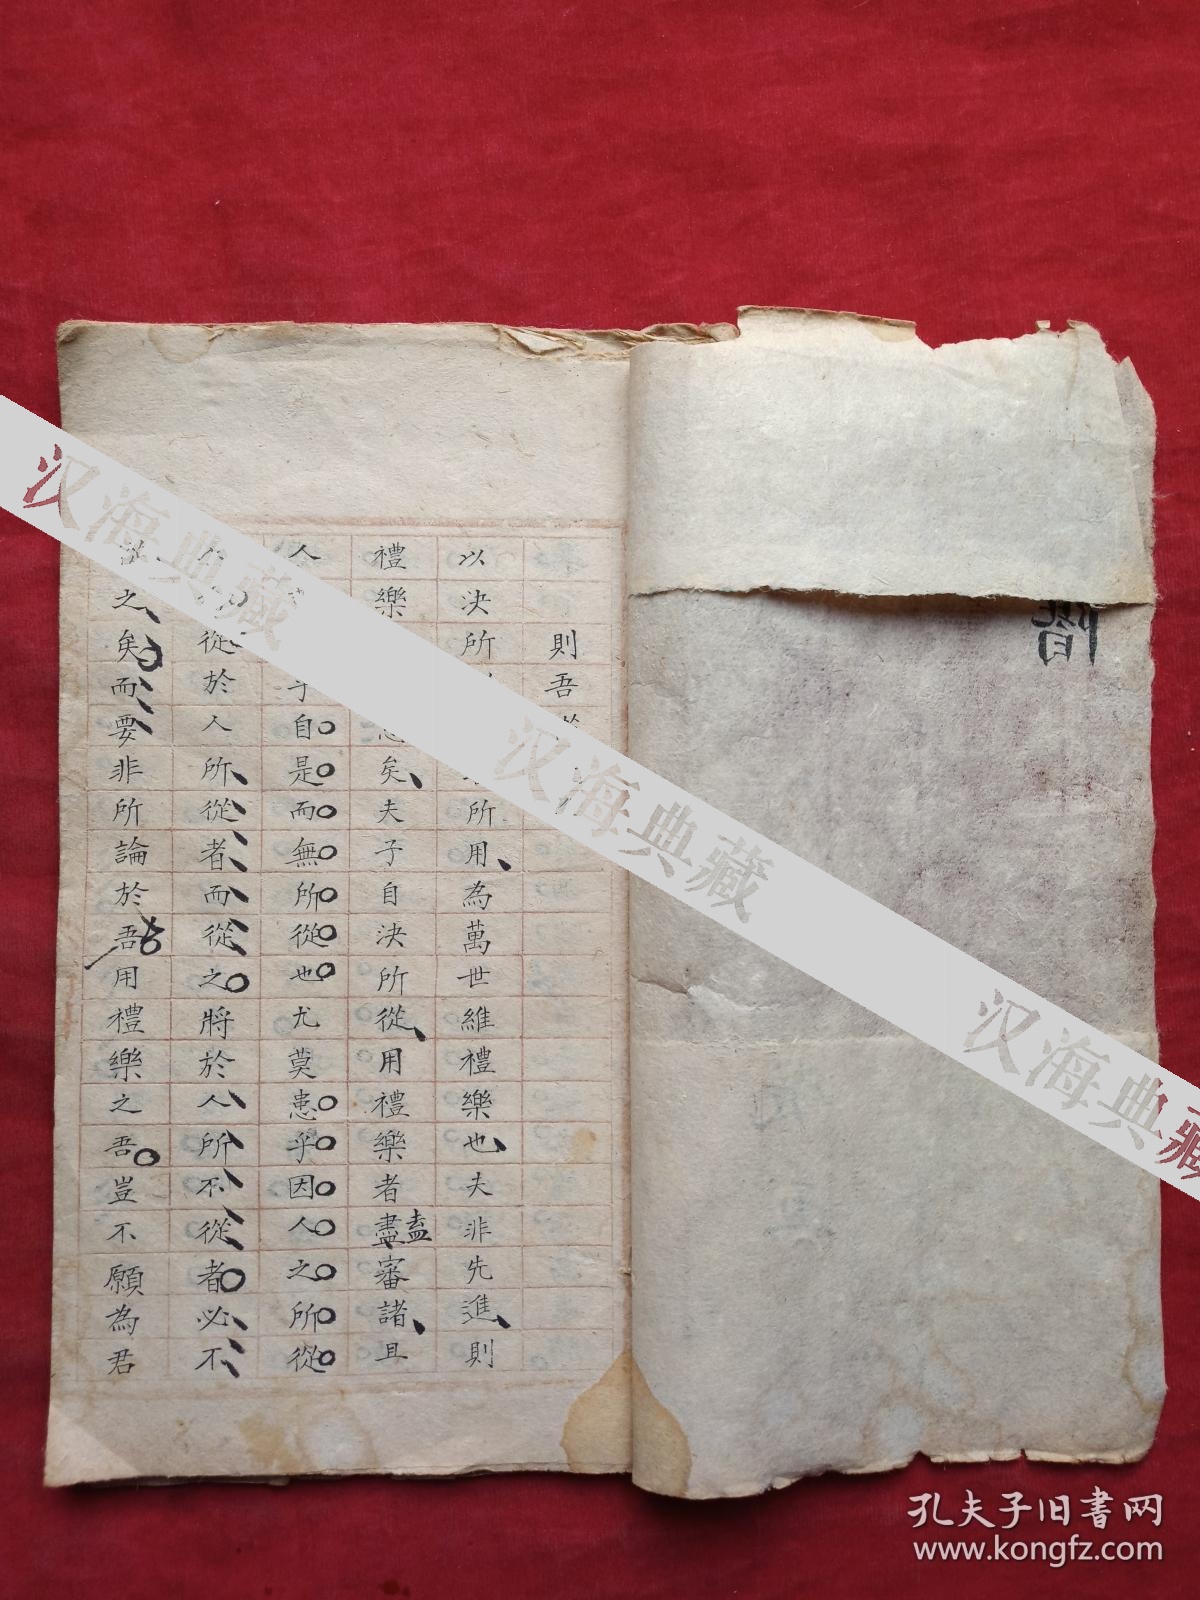 則吾
以決所所用為萬世維禮樂也夫非先進則
禮樂矣夫子自決所從用禮樂者盡盍審諸且
人乎自是而無所從也尤莫患乎因人之所從
從於人所從者而從之將於人所不從者必不
之矣而要非所論於吾用禮樂之吾豈不願為君
汉海典藏
汉海典藏
汉海典藏
孔夫子旧书网
www.kongfz.com